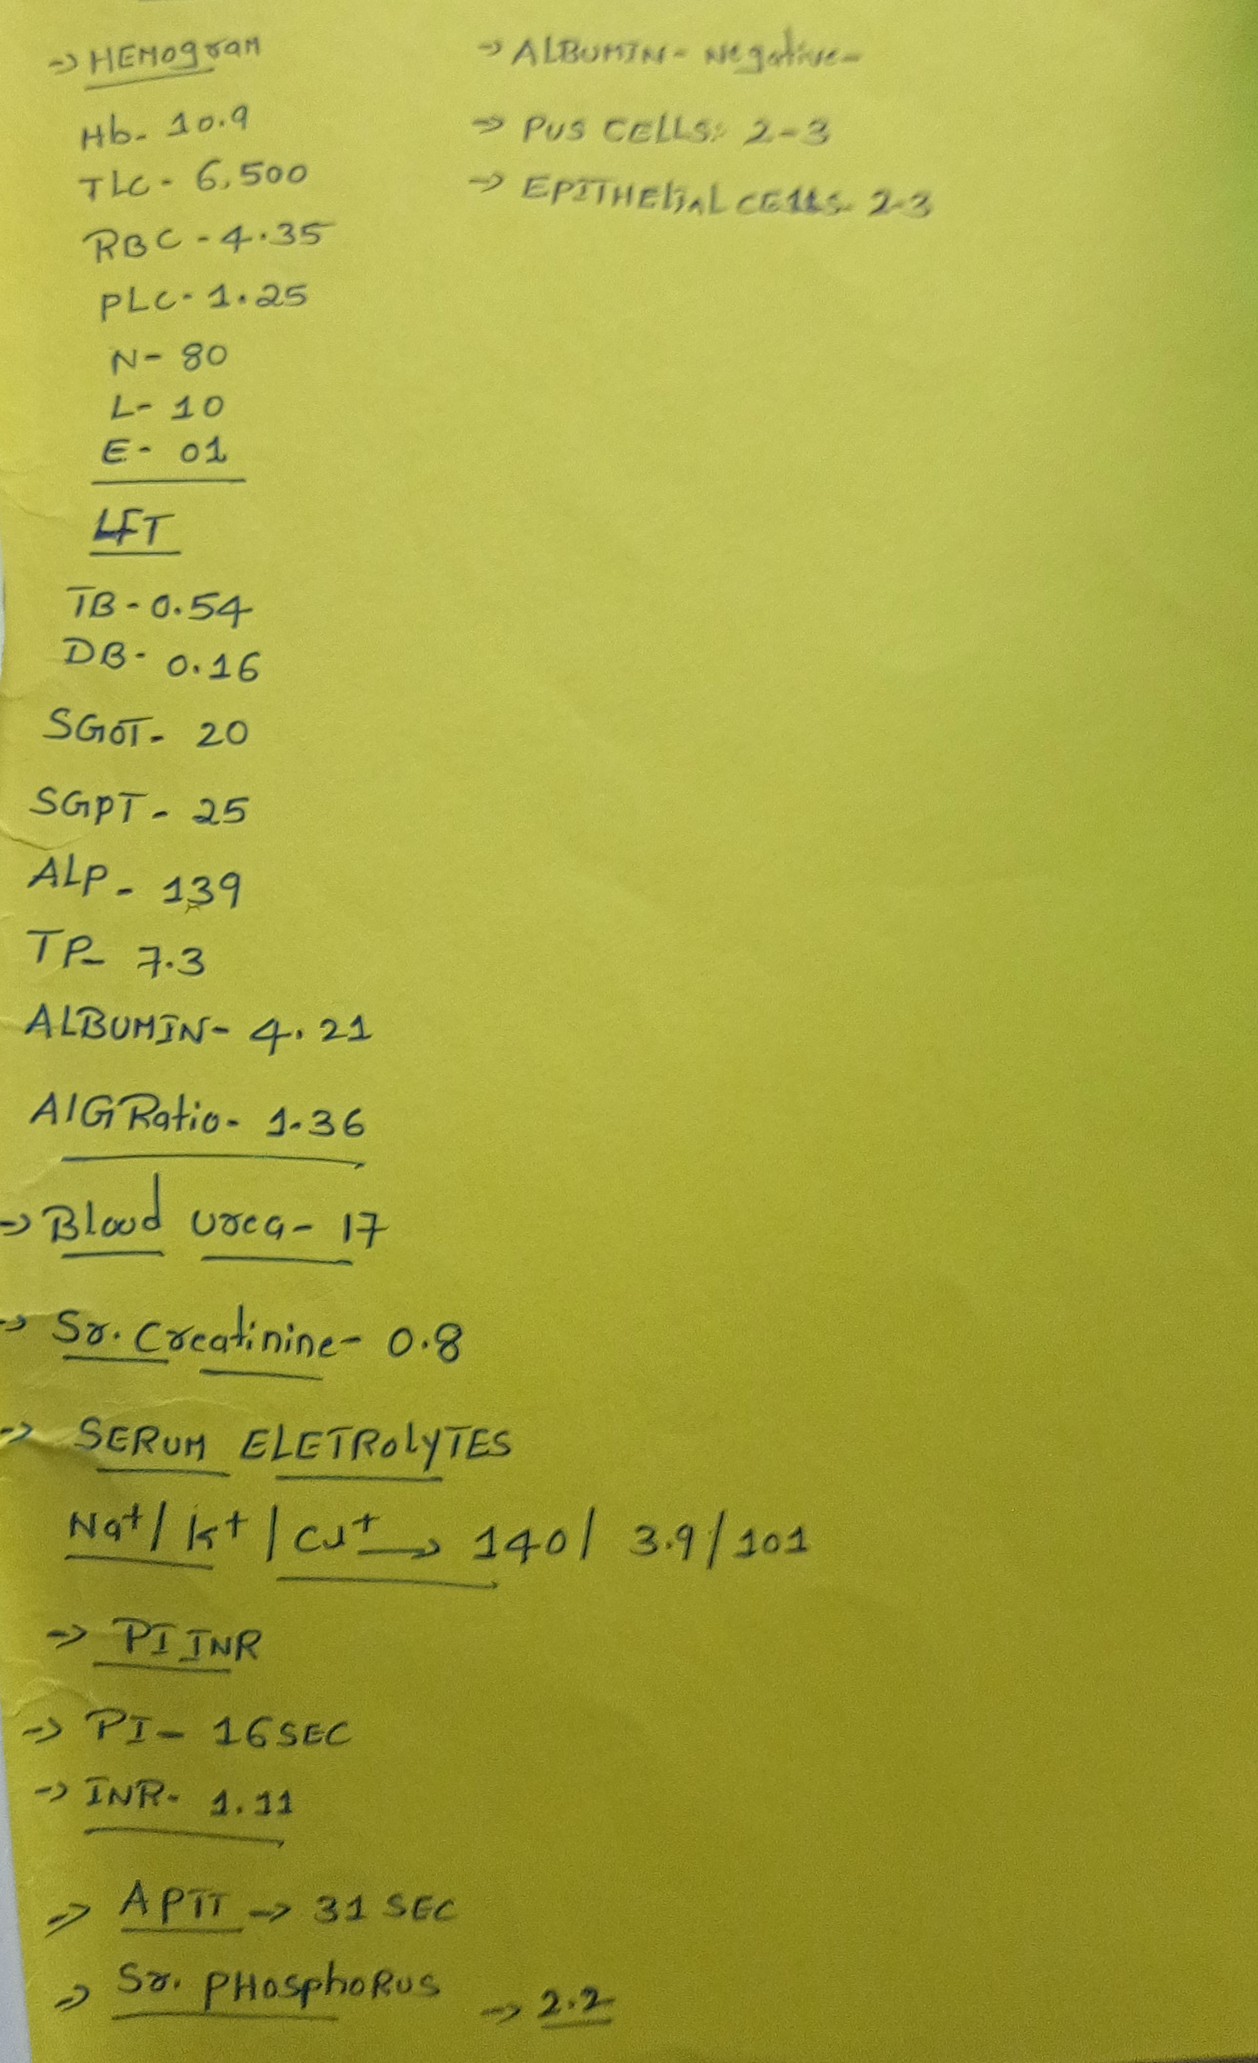 → HEMogram
Hb- 10.9
TLC- 6,500
RBC -4.35
PLC- 1.25
N- 80
L- 10
E- 01
LFT
TB - 0.54
DB- 0.16
SGOT- 20
SGPT- 25
ALP- 139
TP- 7.3
ALBUMIN- 4.21
A/G Ratio- 1.36
→ Blood urea- 17
→ Sr. Creatinine- 0.8
→ SERUM ELETROLYTES
Na+/ K+ / Cl+ → 140/ 3.9/101
→ PT INR
→ PT- 16 SEC
→ INR- 1.11
→ APTT → 31 SEC
→ Sr. PHosphoRus → 2.2
→ ALBUMIN- Negative-
→ PUS CELLS: 2-3
→ EPITHElial CELLS- 2-3